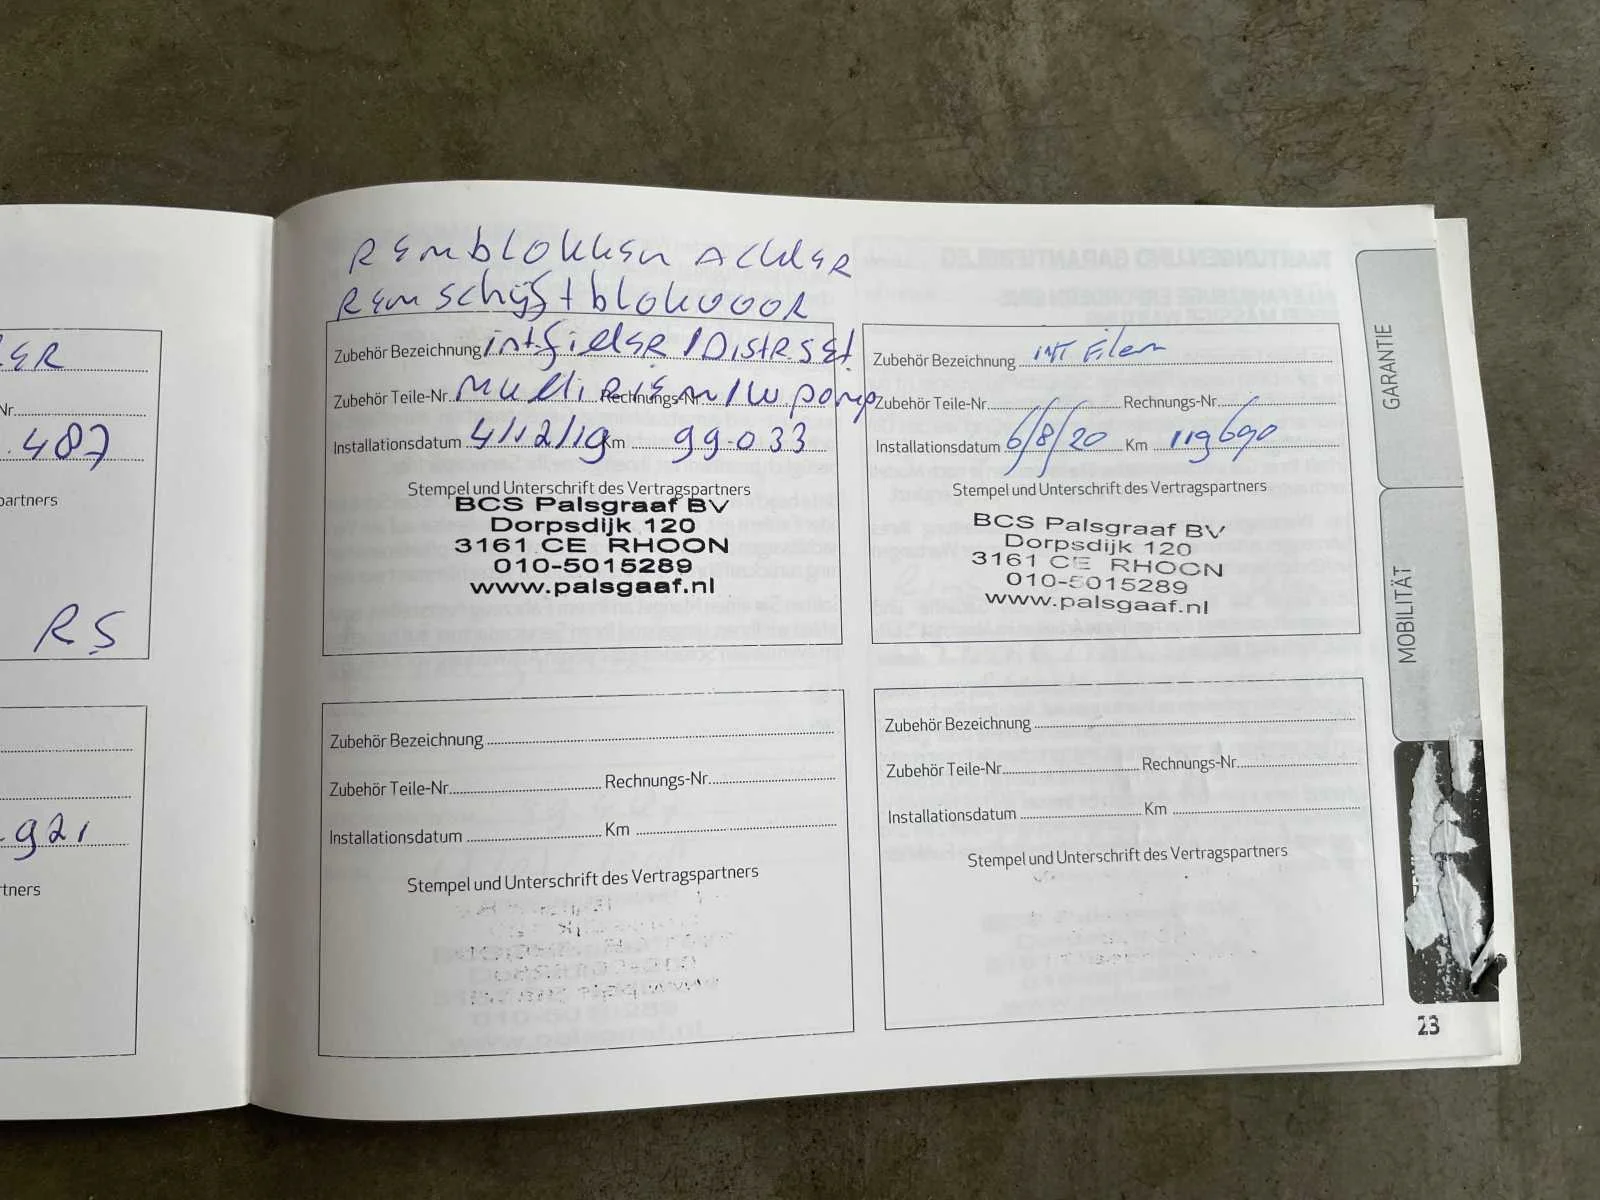 ER
Nr.
.487
partners
RS
.921
rtners
REMBLOKKEN ACHTER
REMSCHIJF + BLOK VOOR
Zubehör Bezeichnung intfielter / DistR SET
Zubehör Teile-Nr. MULTI RIEM / W pomp Rechnungs-Nr.
Installationsdatum 4/12/19 Km 99.033
Stempel und Unterschrift des Vertragspartners
BCS Palsgraaf BV
Dorpsdijk 120
3161 CE RHOON
010-5015289
www.palsgaaf.nl
Zubehör Bezeichnung INT
Zubehör Teile-Nr. Rechnungs-Nr.
Installationsdatum 6/8/20 Km 119690
Stempel und Unterschrift des Vertragspartners
BCS Palsgraaf BV
Dorpsdijk 120
3161 CE RHOON
010-5015289
www.palsgaaf.nl
Zubehör Bezeichnung
Zubehör Teile-Nr. Rechnungs-Nr.
Installationsdatum Km
Stempel und Unterschrift des Vertragspartners
Zubehör Bezeichnung
Zubehör Teile-Nr. Rechnungs-Nr.
Installationsdatum Km
Stempel und Unterschrift des Vertragspartners
GARANTIE
MOBILITÄT
23